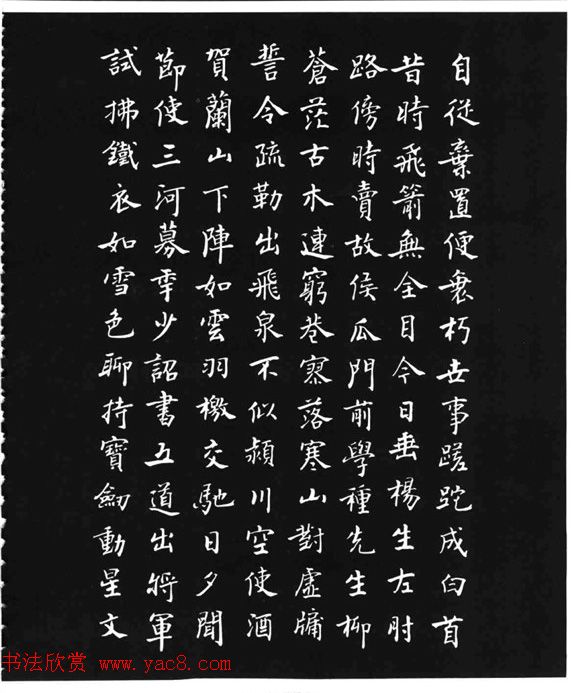 自從棄置便衰朽世事蹉跎成白首
昔時飛箭無全目今日垂楊生左肘
路傍時賣故侯瓜門前學種先生柳
蒼茫古木連窮巷寥落寒山對虛牖
誓令疏勒出飛泉不似潁川空使酒
賀蘭山下陣如雲羽檄交馳日夕聞
節使三河募年少詔書五道出將軍
試拂鐵衣如雪色聊持寶劍動星文
书法欣赏 www.yac8.com